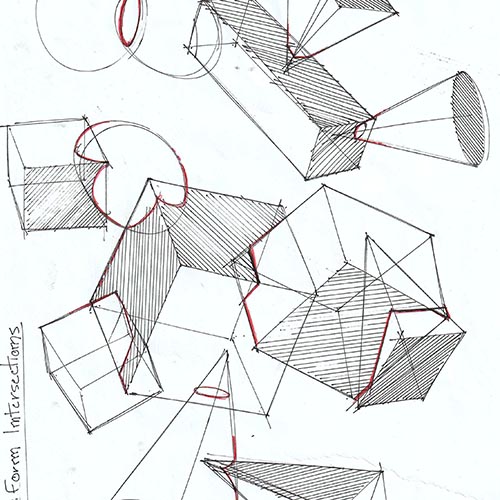 Form Intersections